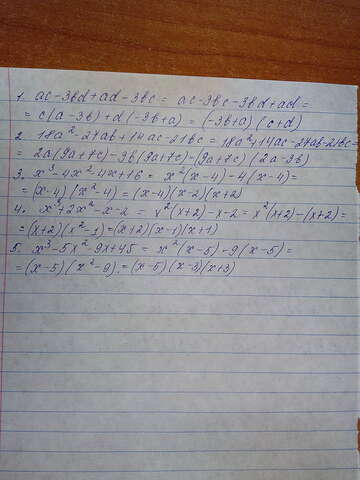 1. ac-3bd+ad-3bc = ac-3bc-3bd+ad=
= c(a-3b)+d(-3b+a) = (-3b+a)(c+d)
2. 18a²-27ab+14ac-21bc = 18a²+14ac-27ab-21bc=
= 2a(9a+7c)-3b(9a+7c)-(9a+7c)(2a-3b)
3. x³-4x²-4x+16 = x²(x-4)-4(x-4)=
= (x-4)(x²-4) = (x-4)(x-2)(x+2)
4. x³+2x²-x-2 = x²(x+2)-x-2 = x²(x+2)-(x+2)=
= (x+2)(x²-1) = (x+2)(x-1)(x+1)
5. x³-5x²-9x+45 = x²(x-5)-9(x-5)=
= (x-5)(x²-9) = (x-5)(x-3)(x+3)